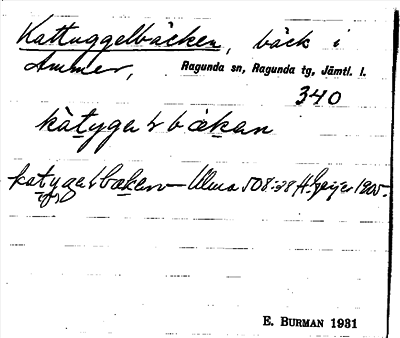 Kattuggelbäcken, bäck i
Ammer, Ragunda sn, Ragunda tg, Jämtl. l.
340
kàtygəlbäkən
katygəlbäkən – Ulma 508:38 H. Geijer 1905.
E. BURMAN 1931